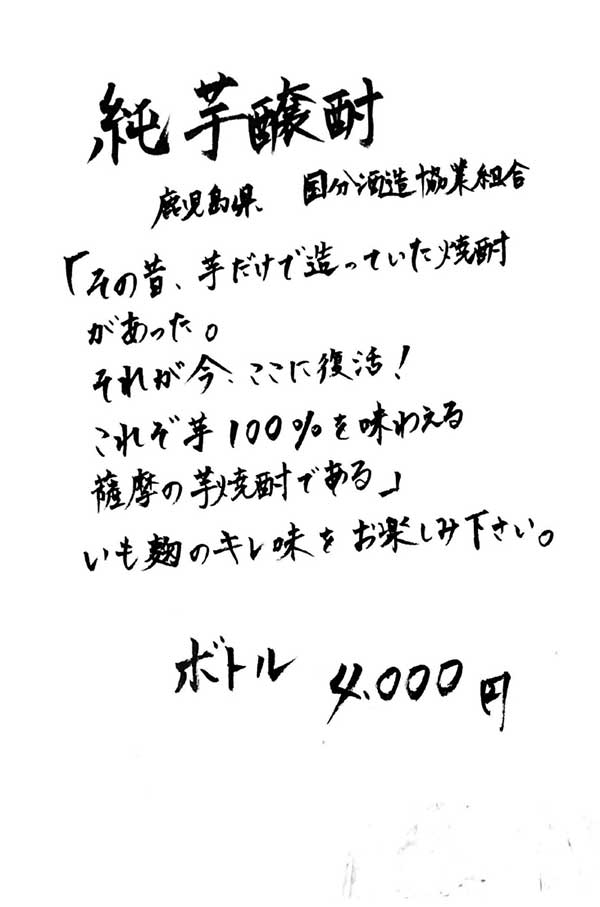 純芋醸酎
鹿児島県、国分酒造協業組合
「その昔、芋だけで造っていた焼酎
があった。
それが今、ここに復活！
これぞ芋100%を味わえる
薩摩の芋焼酎である」
いも麹のキレ味をお楽しみ下さい。
ボトル 4.000円